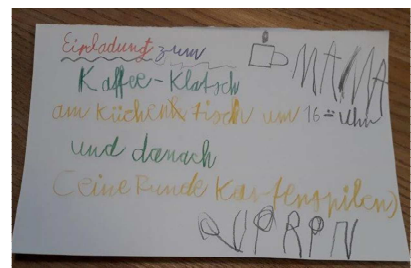 Einladung zum
MAMA
Kaffee-Klatsch
am Küchentisch um 16 Uhr
und danach
(eine Runde Kartenspilen)